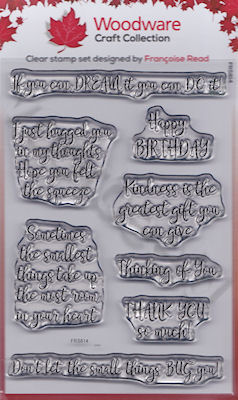 Woodware
Craft Collection
Clear stamp set designed by Françoise Read
FRS814
If you can DREAM it you can DO it!
I just hugged you
in my thoughts
Hope you felt
the squeeze
Happy
BIRTHDAY
Kindness is the
greatest gift you
can give
Sometimes
the smallest
things take up
the most room
in your heart
Thinking of You
THANK YOU
so much!
FRS814
Don't let the small things BUG you!